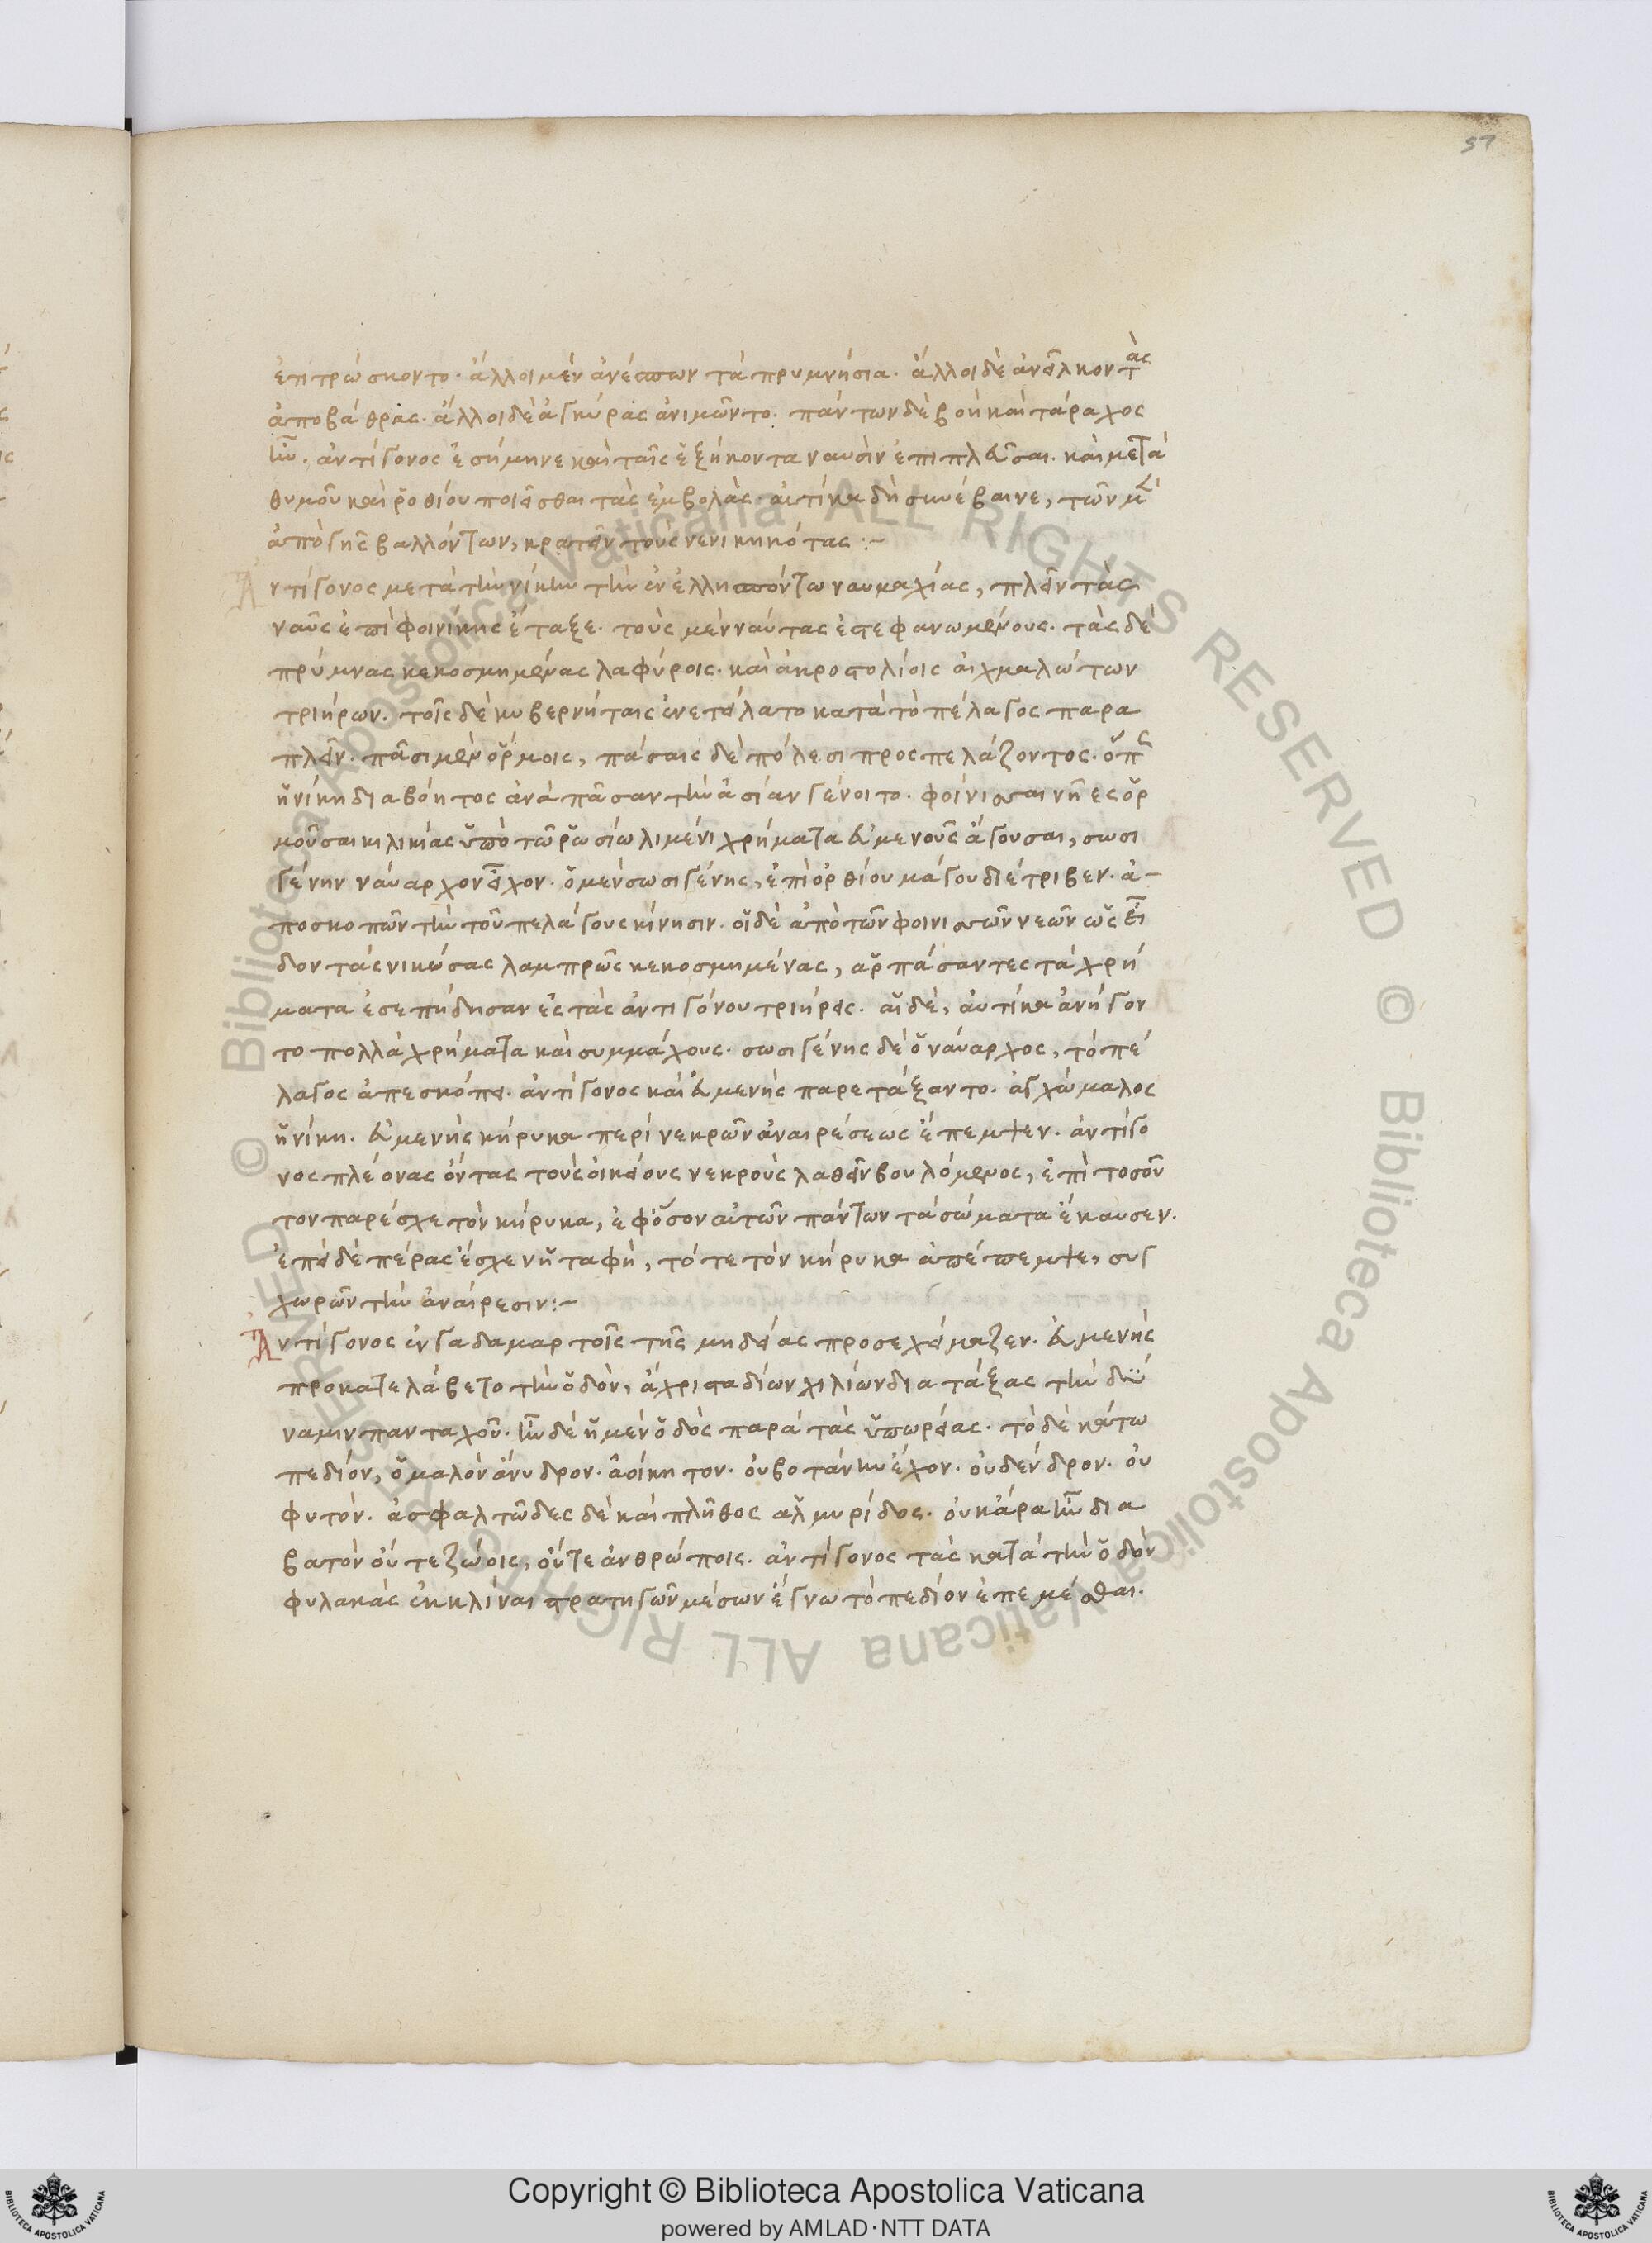 37
ἐτιτρώσκοντο· ἄλλοι μὲν ἀνέσπων τὰ πρυμνήσια· ἄλλοι δὲ ἀνεῖλκον τὰς
ἀποβάθρας· ἄλλοι δὲ ἀγκύρας ἀνιμῶντο· πάντων δὲ βοὴ καὶ τάραχος
ἦν. ἀντίγονος ἐσήμηνε καὶ ταῖς ἑξήκοντα ναυσὶν ἐπιπλεῦσαι. καὶ μετὰ
θυμοῦ καὶ ῥοθίου ποιεῖσθαι τὰς ἐμβολὰς· αὐτίκα δὴ συνέβαινε, τῶν μὲν
ἀπὸ γῆς βαλλόντων, κρατεῖν τοὺς νενικηκότας :~
Ἀντίγονος μετὰ τὴν νίκην τὴν ἐν ἑλλησπόντω ναυμαχίας, πλεῖν τὰς
ναῦς ἐπὶ φοινίκης ἔταξε. τοὺς μὲν ναύτας ἐστεφανωμένους. τὰς δὲ
πρύμνας κεκοσμημένας λαφύροις. καὶ ἀκροστολίοις αἰχμαλώτων
τριήρων. τοῖς δὲ κυβερνήταις ἐνετείλατο κατὰ τὸ πέλαγος παρα
πλεῖν. πᾶσι μὲν ὅρμοις, πάσαις δὲ πόλεσι προσπελάζοντος. ὅπως
ἡ νίκη διαβόητος ἀνὰ πᾶσαν τὴν ἀσίαν γένοιτο. φοίνισσαι νῆες ὁρ
μοῦσαι κιλικίας ὑπὸ τῶ ῥωσίω λιμένι χρήματα εὐμενοῦς ἄγουσαι, σωσι
γένην ναύαρχον εἶχον. ὁ μὲν σωσιγένης, ἐπὶ ὀρθίου μάγου διέτριβεν. ἀ-
ποσκοπῶν τὴν τοῦ πελάγους κίνησιν. οἱ δὲ ἀπὸ τῶν φοινισσῶν νεῶν ὡς εἶ
δον τὰς νικώσας λαμπρῶς κεκοσμημένας, ἁρπάσαντες τὰ χρή
ματα ἐσεπήδησαν εἰς τὰς ἀντιγόνου τριήρεις. αἱ δὲ, αὐτίκα ἀνήγον
το πολλὰ χρήματα καὶ συμμάχους. σωσιγένης δὲ ὁ ναύαρχος, τὸ πέ
λαγος ἀπεσκόπει. ἀντίγονος καὶ εὐμενὴς παρετάξαντο. ἀγχώμαλος
ἡ νίκη. εὐμενὴς κήρυκα περὶ νεκρῶν ἀναιρέσεως ἔπεμψεν. ἀντίγο
νος πλέονας ὄντας τοὺς οἰκείους νεκροὺς λαθεῖν βουλόμενος, ἐπὶ τοσοῦ
τον παρέσχε τὸν κήρυκα, ἐφ' ὅσον αὐτῶν πάντων τὰ σώματα ἔκαυσεν.
ἐπεὶ δὲ πέρας ἔσχεν ἡ ταφὴ, τότε τὸν κήρυκα ἀπέπεμψε, συγ
χωρῶν τὴν ἀναίρεσιν :~
Ἀντίγονος ἐν γαδαμαρτοῖς τῆς μηδείας προσεχείμαζεν. εὐμενὴς
προκατελάβετο τὴν ὁδὸν, ἄχρι σταδίων χιλίων διατάξας τὴν δύ
ναμιν πανταχοῦ. ἦν δὲ ἡ μὲν ὁδὸς παρὰ τὰς ὑπωρείας. τὸ δὲ κάτω
πεδίον, ὁμαλὸν ἄνυδρον. ἀοίκητον. οὐ βοτάνην ἔχον. οὐ δένδρον. οὐ
φυτόν. ἀσφαλτῶδες δὲ καὶ πλῆθος ἁλμυρίδος. οὐκ ἄρα ἦν δια
βατὸν οὔτε ζώοις, οὔτε ἀνθρώποις. ἀντίγονος τὰς κατὰ τὴν ὁδὸν
φυλακὰς ἐκκλίναι στρατηγῶν μέσων ἔγνω τὸ πεδίον ἐπεμέσθαι.
© Biblioteca Apostolica Vaticana ALL RIGHTS RESERVED © Biblioteca Apostolica Vaticana ALL RIGHTS RESERVED
Copyright © Biblioteca Apostolica Vaticana
powered by AMLAD·NTT DATA
BIBLIOTECA APOSTOLICA VATICANA
BIBLIOTECA APOSTOLICA VATICANA